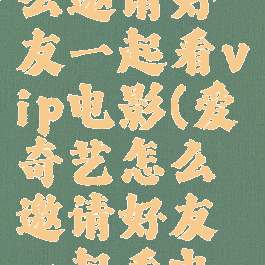 么邀请好
友一起看v
ip电影(爱
奇艺怎么
邀请好友
一起看电